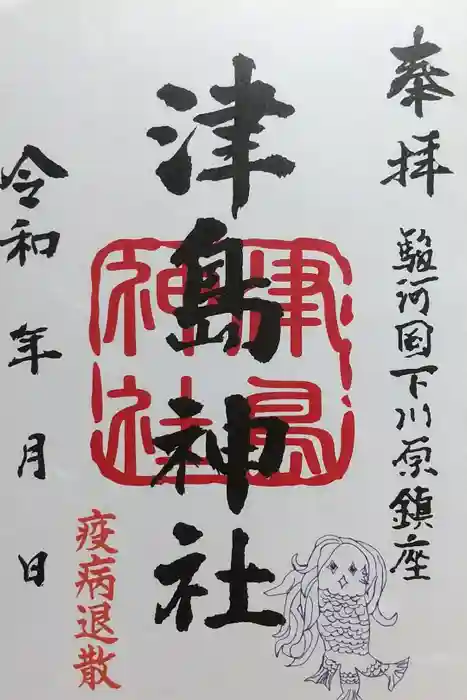 奉拝
駿河国下川原鎮座
津島神社
津島神社
令和 年 月 日
疫病退散